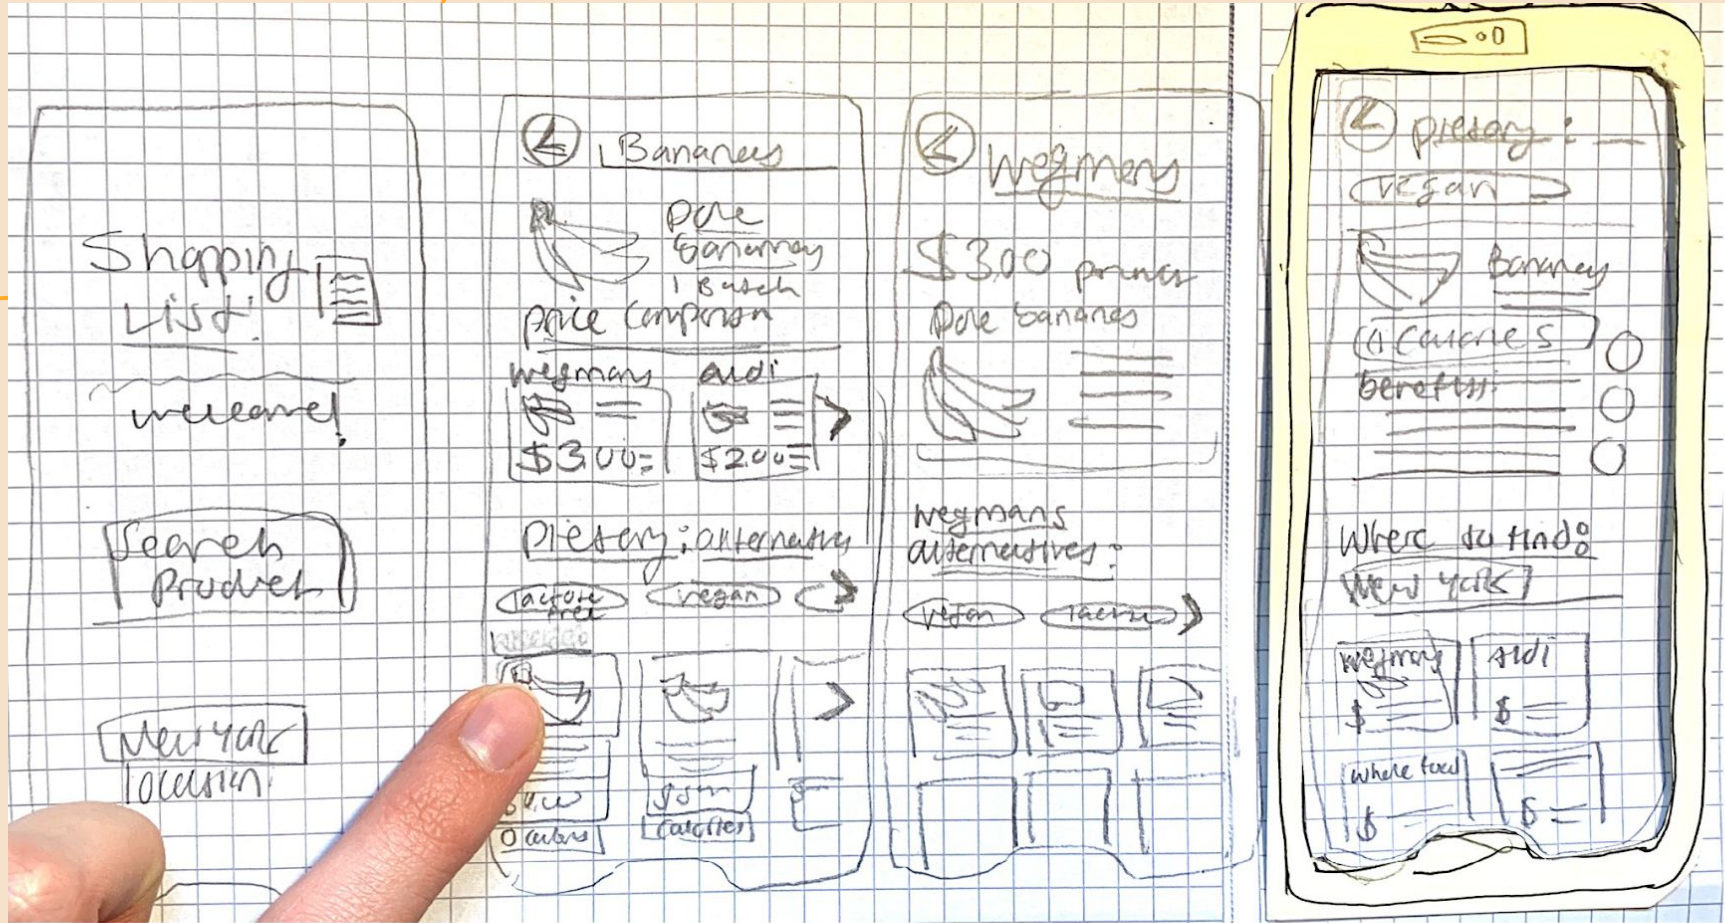 Shopping
List:
welcome!
Search
Product
New York
location
Bananas
Dole
Bananas
1 Batch
price comparison
wegmans aldi
$3.00 $2.00
Dietary: alternatives
lactose
free vegan
0 carbs calories
Wegmans
$3.00 price
Dole bananas
Wegmans
alternatives:
vegan lactose
Dietary:
vegan
Bananas
calories
benefits:
Where to find:
New York
wegmans aldi
$ $
whole food
$ $